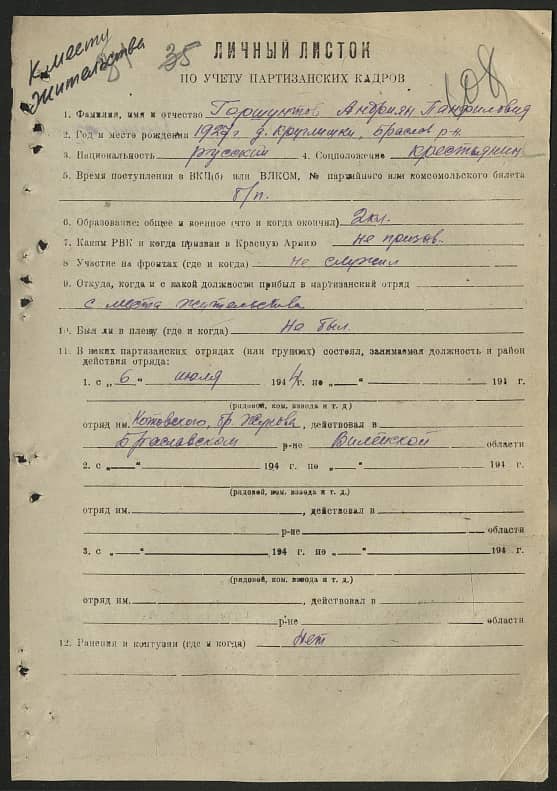 К месту
жительства
35
108
ЛИЧНЫЙ ЛИСТОК
ПО УЧЕТУ ПАРТИЗАНСКИХ КАДРОВ
1. Фамилия, имя и отчество Горшунтов Андриян Панфилович
2. Год и место рождения 1927 г д. Круглишки, Браслав р-н.
3. Национальность русский 4. Соцположение крестьянин
5. Время поступления в ВКП(б) или ВЛКСМ, № партийного или комсомольского билета
б/п.
6. Образование: общее и военное (что и когда окончил) 2 кл.
7. Каким РВК и когда призван в Красную Армию не призв.
8 Участие на фронтах (где и когда) не служил
9. Откуда, когда и с какой должности прибыл в партизанский отряд
с места жительства
10. Был ли в плену (где и когда) Не был.
11. В каких партизанских отрядах (или группах) состоял, занимаемая должность и район
действия отряда:
1. с „ 6 “ июля 1944 г. по „ “ 194 г.
(рядовой, ком. взвода и т. д)
отряд им. Котовского, бр. Жукова, действовал в
Браславском р-не Вилейской области
2. с „ “ 194 г. по „ “ 194 г.
(рядовой, ком. взвода и т. д.)
отряд им. , действовал в
р-не области
3. с „ “ 194 г. по „ “ 194 г.
(рядовой, ком. взвода и т. д.)
отряд им. , действовал в
р-не области
12. Ранения и контузии (где и когда) Нет